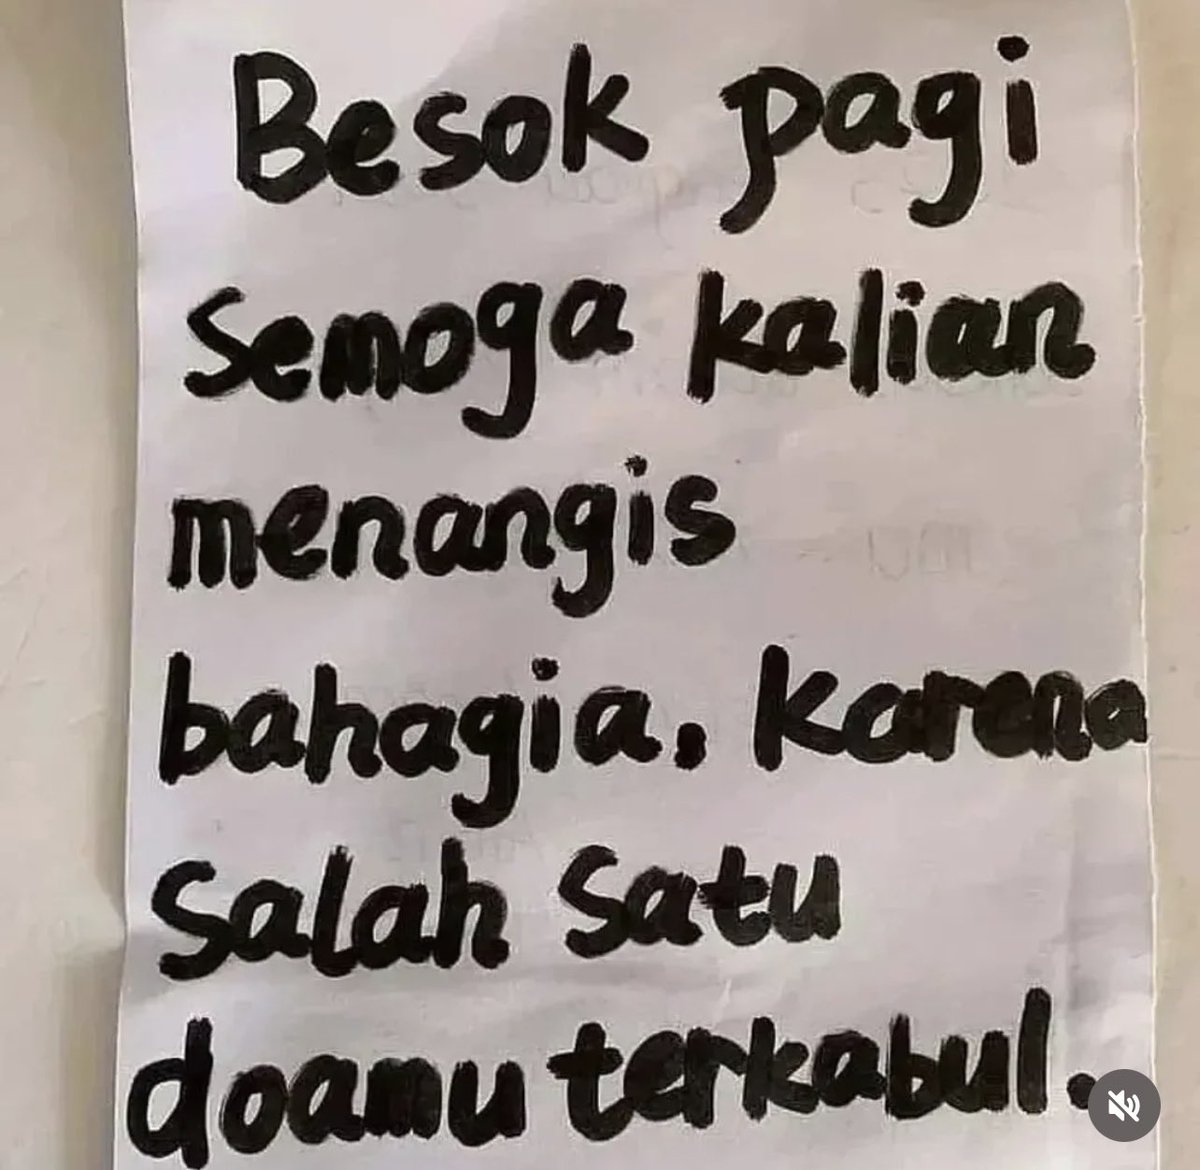 Besok pagi
semoga kalian
menangis
bahagia, karena
salah satu
doamu terkabul.